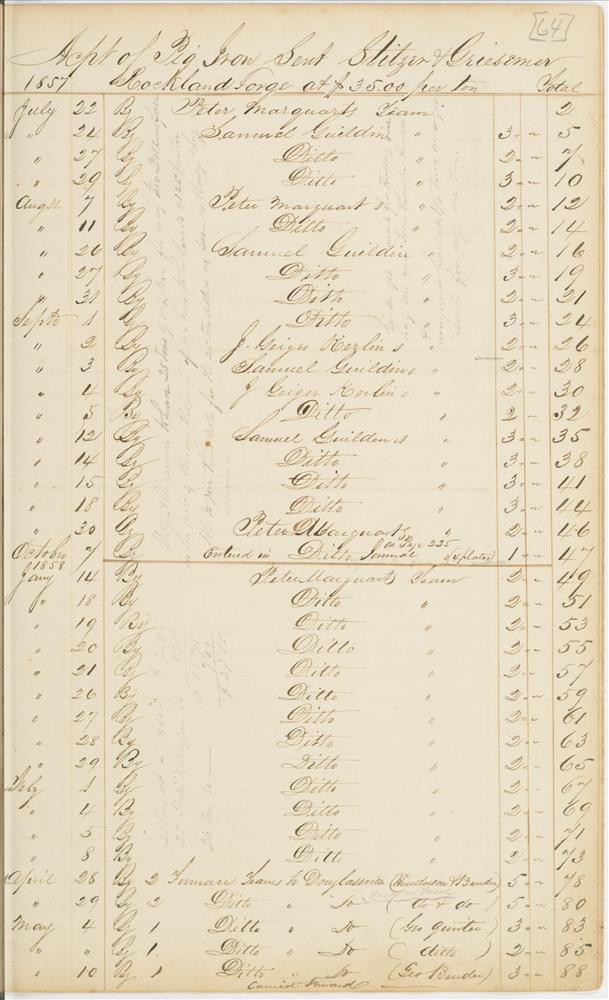 [64]
Acpt of Pig Iron Sent Stitzer & Griesemer
1857 Rockland Forge at $35.00 per ton Total
July 22 By Peter Marquarts Team 2
" 24 By Samuel Guildin " 3 " " 5
" 27 By Ditto " 2 " " 7
" 29 By Ditto " 3 " " 10
Augst 7 By Peter Marquart s " 2 " " 12
" 11 By Ditto " 2 " " 14
" 26 By Samuel Guildin " 2 " " 16
" 27 By Ditto " 3 " " 19
" 31 By Ditto " 2 " " 21
Septr 1 By Ditto " 3 " " 24
" 2 By J. Geiger Kerlin s " 2 " " 26
" 3 By Samuel Guildins " 2 " " 28
" 4 By J Geiger Kerlin s " 2 " " 30
" 5 By Ditto " 2 " " 32
" 12 By Samuel Guilden s " 3 " " 35
" 14 By Ditto " 3 " " 38
" 15 By Ditto " 3 " " 41
" 18 By Ditto " 3 " " 44
" 30 By Peter Marquarts " 2 " " 46
October 7 By Entered in Ditto Journal on Page 225 (4 plates) 1 " " 47
1858
Jany 14 By Peter Marquarts Team 2 " " 49
" 18 By Ditto " 2 " " 51
" 19 By Ditto " 2 " " 53
" 20 By Ditto " 2 " " 55
" 21 By Ditto " 2 " " 57
" 26 By Ditto " 2 " " 59
" 27 By Ditto " 2 " " 61
" 28 By Ditto " 2 " " 63
" 29 By Ditto " 2 " " 65
Feby 1 By Ditto " 2 " " 67
" 4 By Ditto " 2 " " 69
" 5 By Ditto " 2 " " 71
" 8 By Ditto " 2 " " 73
April 28 By 2 Furnace Teams to Douglassville (Henderson & Bender) 5 " " 78
" 29 By 2 Ditto " Do (do & do) 5 " " 80
May 4 By 1 Ditto " Do (Geo Ginter) 3 " " 83
" " By 1 Ditto " Do (ditto) 2 " " 85
" 10 By 1 Ditto " Do (Geo Bender) 3 " " 88
Carried Forward